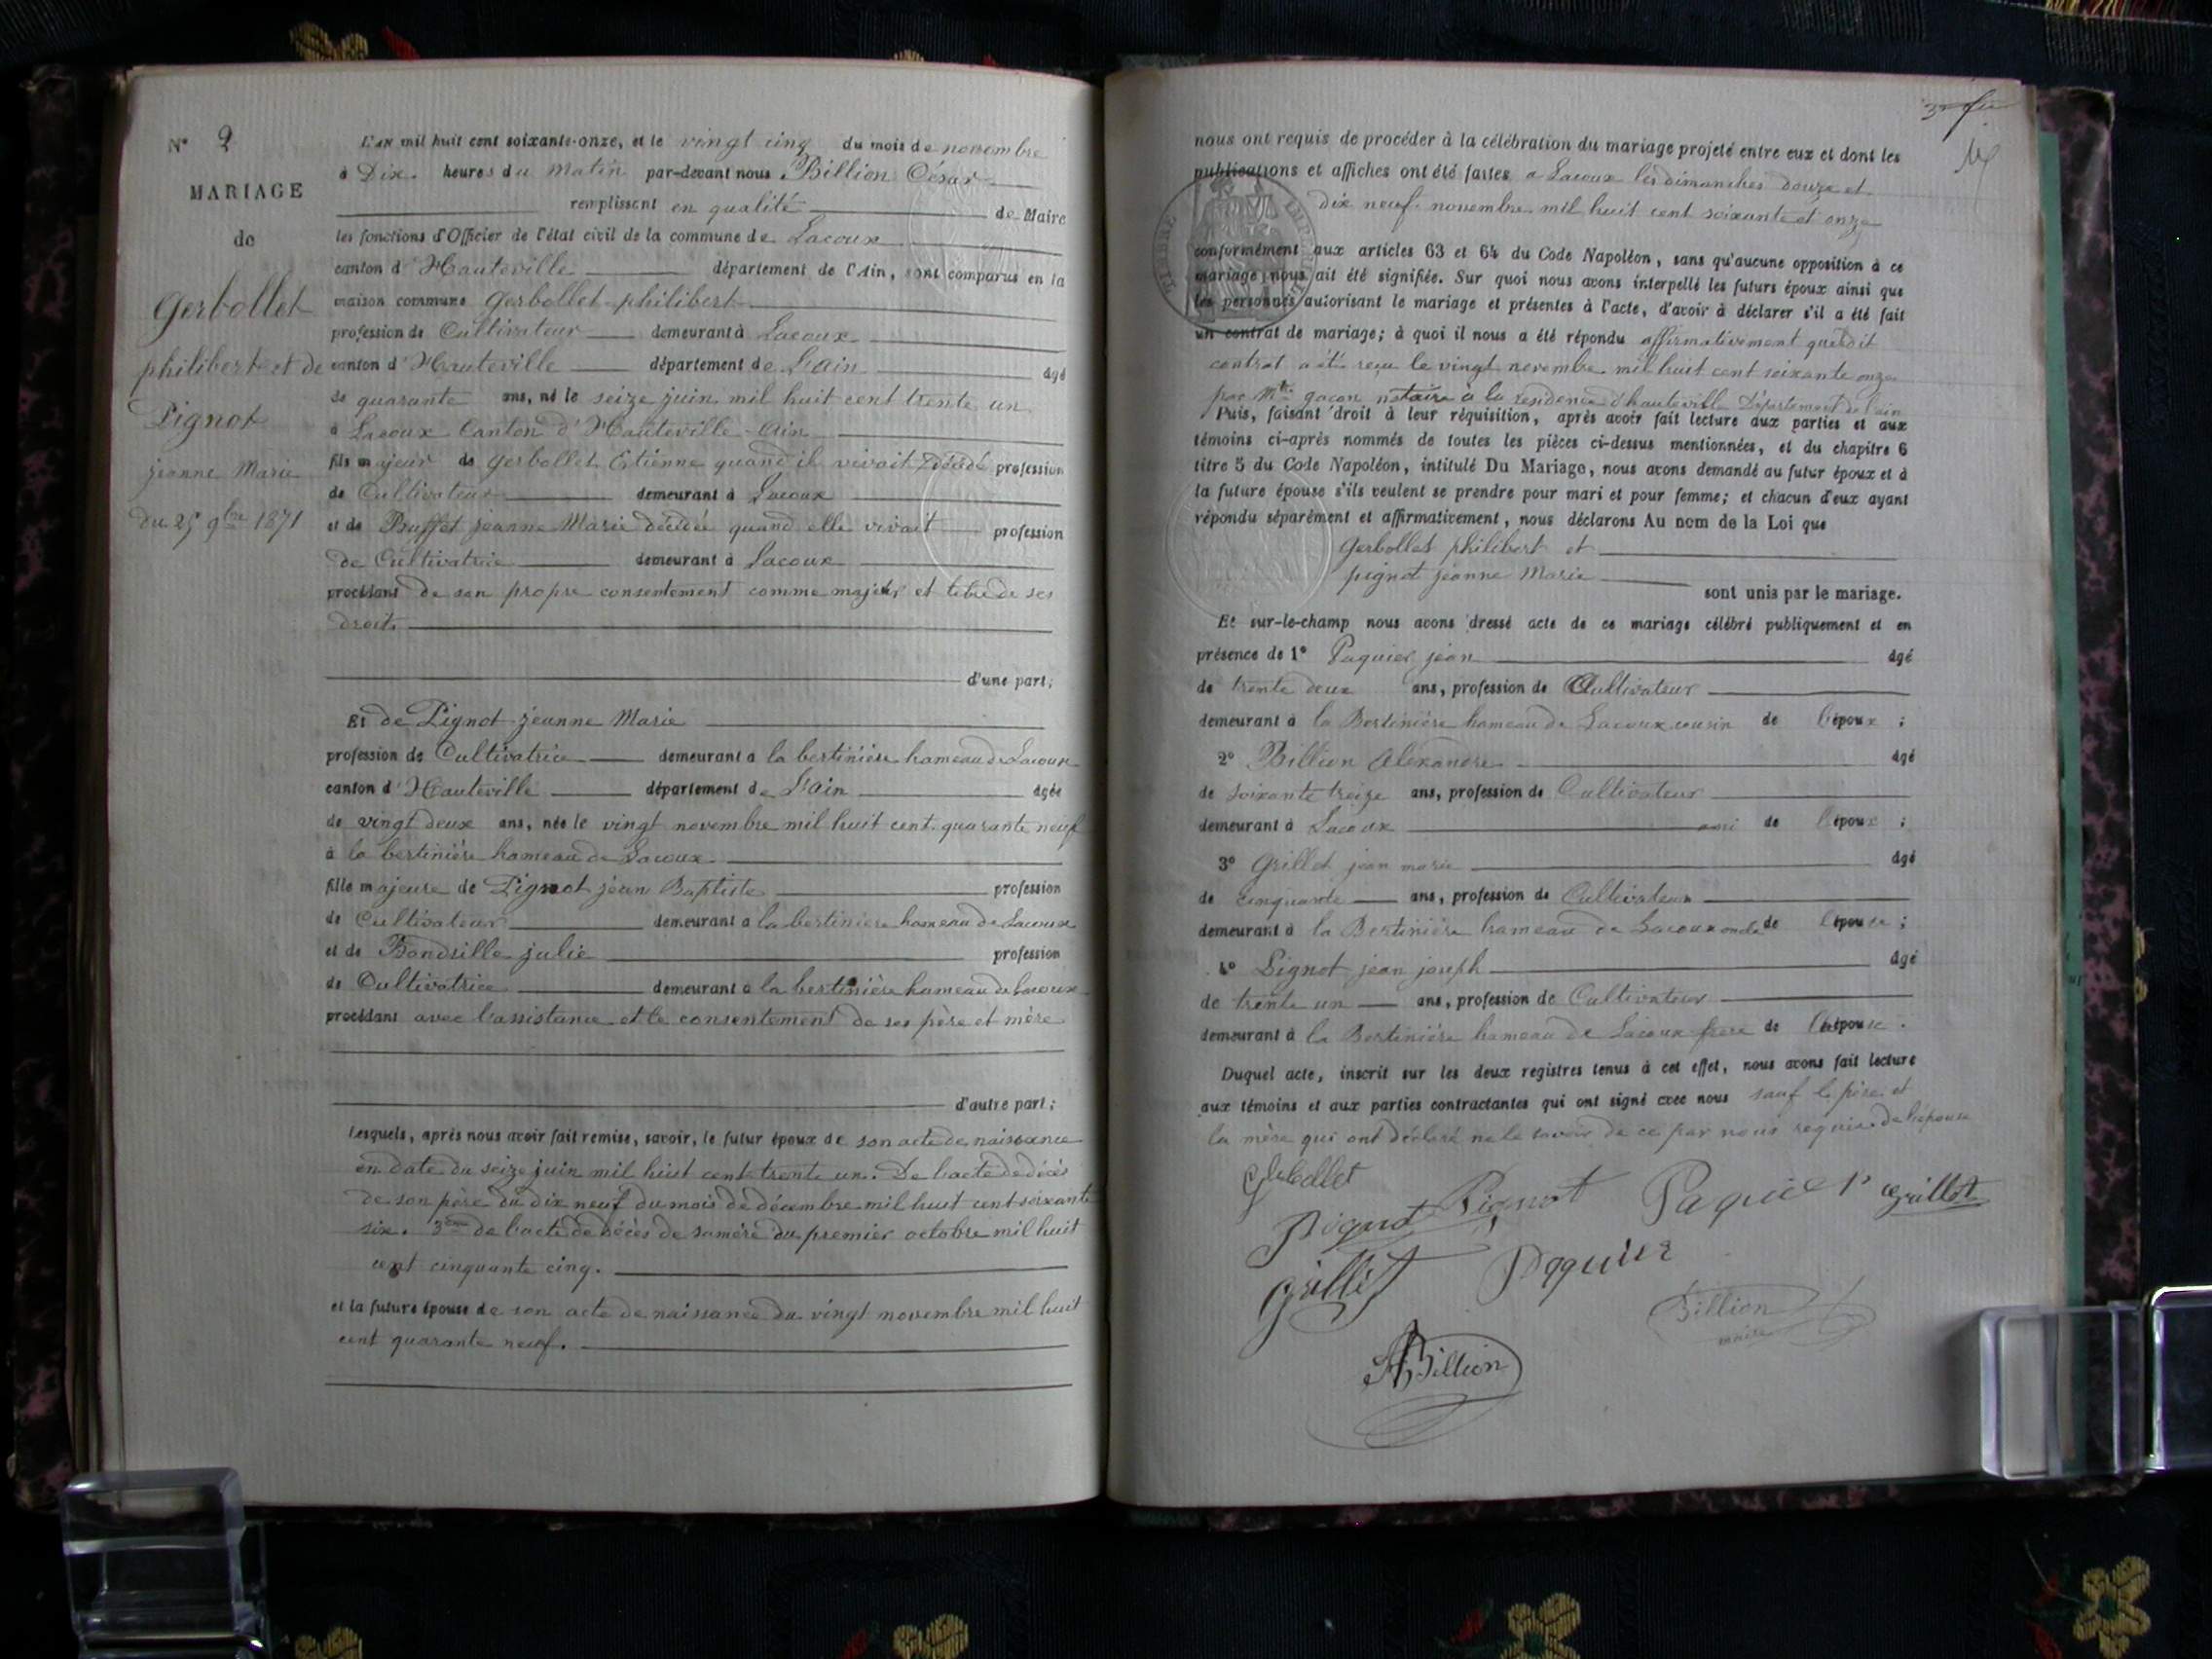 N° 2
MARIAGE
de
Gerbollet
philibert et de
Pignot
jeanne Marie
du 25 9bre 1871
L'AN mil huit cent soixante-onze, et le vingt cinq du mois de novembre
à Dix heures du matin par-devant nous Billion César
remplissant en qualité de Maire
les fonctions d'Officier de l'état civil de la commune de Lacoux
canton d'Hauteville département de l'Ain, sont comparus en la
maison commune Gerbollet philibert
profession de Cultivateur demeurant à Lacoux
canton d'Hauteville département de L'ain âgé
de quarante ans, né le seize juin mil huit cent trente un
à Lacoux Canton d'Hauteville Ain
fils majeur de Gerbollet Estienne quand il vivait décédé profession
de Cultivateur demeurant à Lacoux
et de Buffet jeanne Marie décédée quand elle vivait profession
de Cultivatrice demeurant à Lacoux
procédant de son propre consentement comme majeur et libre de ses
droit.
d'une part;
Et de Pignot jeanne Marie
profession de Cultivatrice demeurant à la bertinière hameau de Lacoux
canton d'Hauteville département de L'Ain âgée
de vingt deux ans, née le vingt novembre mil huit cent quarante neuf
à la bertinière hameau de Lacoux
fille majeure de Pignot jean Baptiste profession
de Cultivateur demeurant à la bertinière hameau de Lacoux
et de Bondsille julie profession
de Cultivatrice demeurant à la bertinière hameau de Lacoux
procédant avec l'assistance et le consentement de ses père et mère
d'autre part;
Lesquels, après nous avoir fait remise, savoir, le futur époux de son acte de naissance
en date du seize juin mil huit cent trente un. De l'acte de décès
de son père du dix neuf du mois de décembre mil huit cent soixante
six. 3em de l'acte de décès de sa mère du premier octobre mil huit
cent cinquante cinq.
et la future épouse de son acte de naissance du vingt novembre mil huit
cent quarante neuf.
nous ont requis de procéder à la célébration du mariage projeté entre eux et dont les
publications et affiches ont été faites a Lacoux les dimanches douze et
dix neuf novembre mil huit cent soixante et onze
conformément aux articles 63 et 64 du Code Napoléon, sans qu'aucune opposition à ce
mariage nous ait été signifiée. Sur quoi nous avons interpellé les futurs époux ainsi que
les personnes autorisant le mariage et présentes à l'acte, d'avoir à déclarer s'il a été fait
un contrat de mariage; à quoi il nous a été répondu affirmativement quedit
contrat a été reçu le vingt novembre mil huit cent soixante onze
par Mtre gacon notaire à la residence d'hauteville Département de l'ain
Puis, faisant droit à leur réquisition, après avoir fait lecture aux parties et aux
témoins ci-après nommés de toutes les pièces ci-dessus mentionnées, et du chapitre 6
titre 5 du Code Napoléon, intitulé Du Mariage, nous avons demandé au futur époux et à
la future épouse s'ils veulent se prendre pour mari et pour femme; et chacun d'eux ayant
répondu séparément et affirmativement, nous déclarons Au nom de la Loi que
Gerbollet philibert et
pignot jeanne Marie
sont unis par le mariage.
Et sur-le-champ nous avons dressé acte de ce mariage célébré publiquement et en
présence de 1° Paquier jean âgé
de trente deux ans, profession de Cultivateur
demeurant à la Bertinière hameau de Lacoux cousin de l'époux ;
2° Billion Alexandre âgé
de soixante treize ans, profession de Cultivateur
demeurant à Lacoux ami de l'époux ;
3° Grillet jean marie âgé
de cinquante ans, profession de Cultivateur
demeurant à la Bertinière hameau de Lacoux oncle de l'épouse ;
4° Pignot jean joseph âgé
de trente un ans, profession de Cultivateur
demeurant à la Bertinière hameau de Lacoux frere de l'épouse.
Duquel acte, inscrit sur les deux registres tenus à cet effet, nous avons fait lecture
aux témoins et aux parties contractantes qui ont signé avec nous sauf le père et
la mère qui ont déclaré ne le savoir de ce par nous requis. de l'épouse
Gerbollet
Pignot Pignot Paquier Grillet
Grillet Paquier
Billion
maire
ABillion